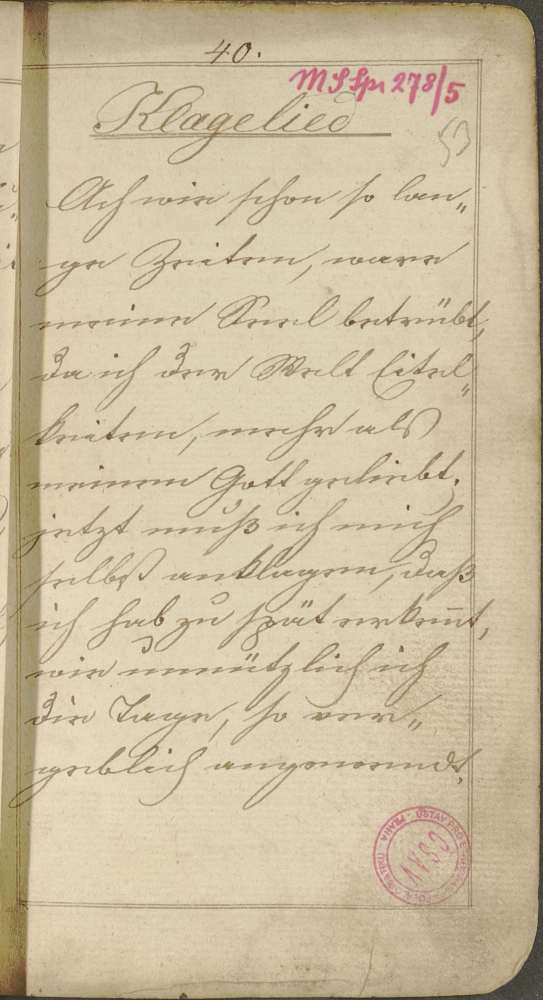 40.
MS Spr 278/5
53
Klagelied
Ach wie schon so lan„
ge Zeiten, ware
meine Seel betrübt,
da ich der Welt Eitel„
keiten, mehr als
meinem Gott geliebt.
jetzt muß ich mich
selbst anklagen, daß
ich hab zu spät erkent,
wie unnützlich ich
die Tage, so ver„
geblich angewendt,
PRAHA · ÚSTAV PRO
ČSAV